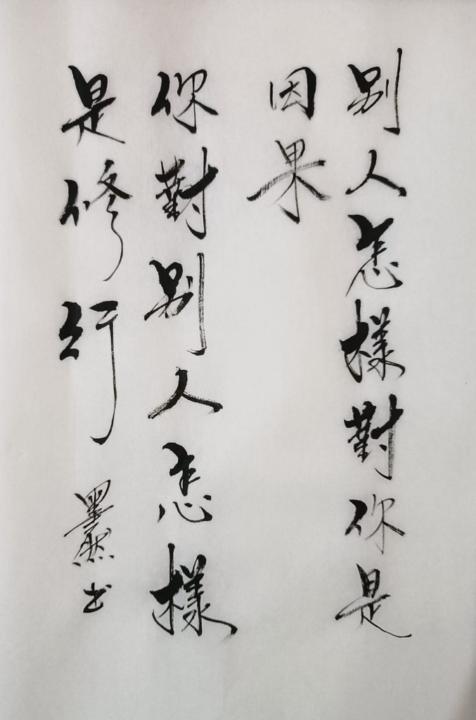 别人怎樣對你是
因果
你對别人怎樣
是修行
墨然书